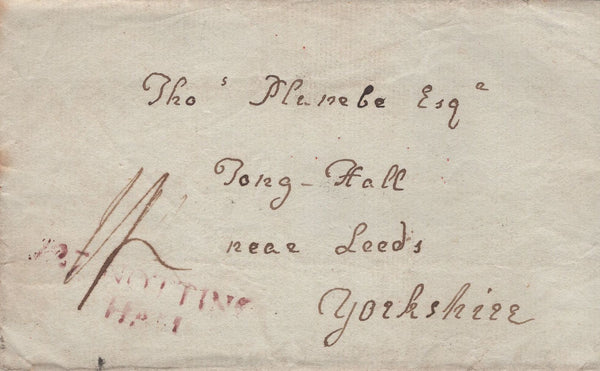 Thoˢ Plumbe Esqᵉ
Tong-Hall
near Leeds
Yorkshire
NOTTING
HAM